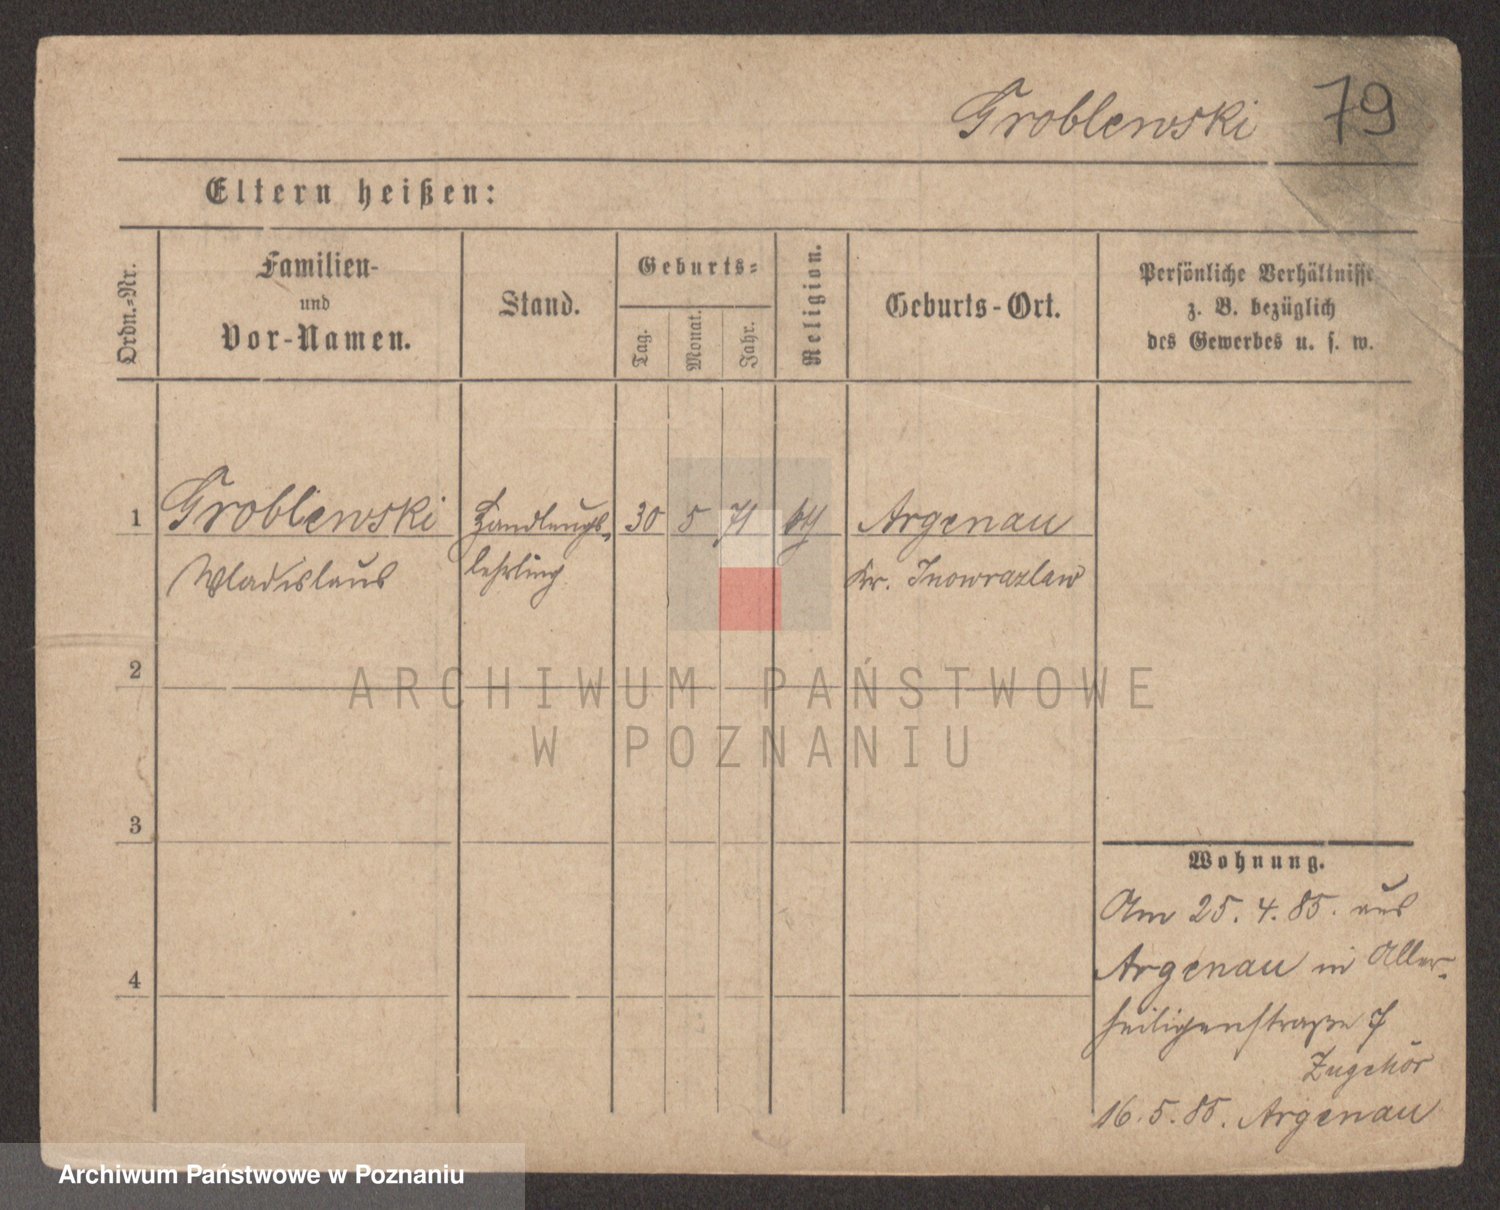 Groblewski 79
Eltern heißen:
Ordn.-Nr.
Familien-
und
Vor-Namen.
Stand.
Geburts-
Tag.
Monat.
Jahr.
Religion.
Geburts-Ort.
Persönliche Verhältnisse
z. B. bezüglich
des Gewerbes u. s. w.
1 Groblewski Handlungs- 30 5 71 Argenau
Wladislaus lehrling Kr. Inowrazlaw
2
ARCHIWUM PAŃSTWOWE
W POZNANIU
3
Wohnung.
Am 25. 4. 85. aus
Argenau in Aller-
4
heiligenstraße 7
16. 5. 85. Argenau
Archiwum Państwowe w Poznaniu